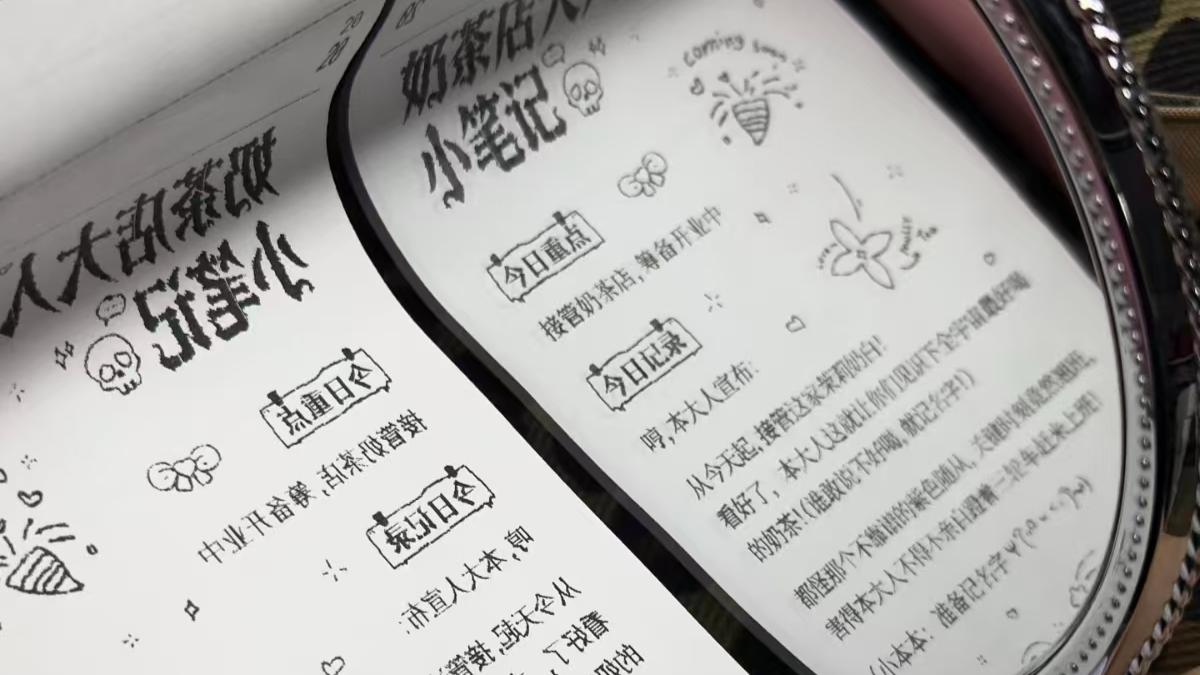 奶茶店大人
小笔记
coming soon
今日重点
接管奶茶店,筹备开业中
今日记录
哼,本大人宣布:
从今天起,接管这家茉莉奶白!
看好了,本大人这就让你们见识下全宇宙最好喝
的奶茶!((谁敢说不好喝,就记名字!)
都怪那个不靠谱的紫色随从,关键时刻竟然掉
害得本大人不得不亲自蹬着三轮车赶来上班!
(小本本:准备记名字
奶茶店大人
小笔记
今日重点
接管奶茶店,筹备开业中
今日记录
哼,本大人宣布:
从今天起,接管
看好了,
的奶